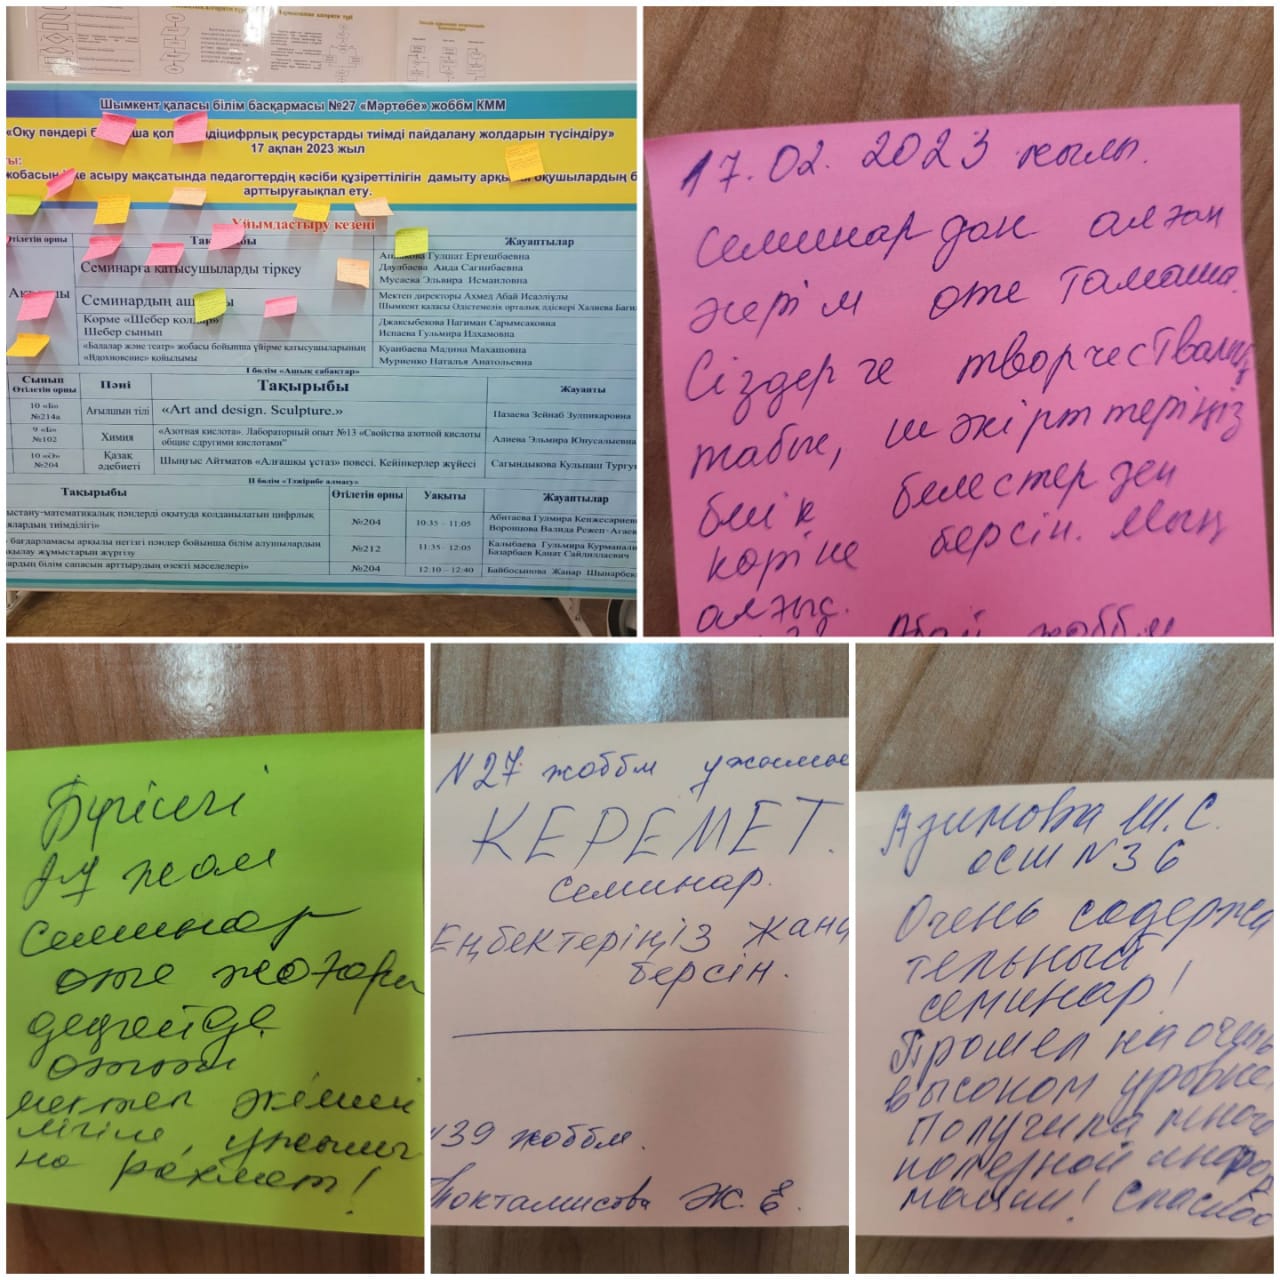 Шымкент қаласы білім басқармасы №27 «Мәртөбе» жоббм КММ
«Оқу пәндері б ша қол ді цифрлық ресурстарды тиімді пайдалану жолдарын түсіндіру»
17 ақпан 2023 жыл
ты:
жобасын іске асыру мақсатында педагогтердің кәсіби құзіреттілігін дамыту арқылы оқушылардың б
арттыруға ықпал ету.
Ұйымдастыру кезеңі
Өтілетін орны Тақырыбы Жауаптылар
Семинарға қатысушыларды тіркеу
Гулшат Ергешбаевна
Даулбаева Аида Сагинбаевна
Мусаева Эльвира Исмаиловна
Семинардың аш
Мектеп директоры Ахмед Абай Исаәліұлы
Шымкент қаласы Әдістемелік орталық әдіскері Халиева Баги
Көрме «Шебер қолдар»
Шебер сынып
Джаксыбекова Нагиман Сарымсаковна
Испаева Гульмира Илхамовна
«Балалар және театр» жобасы бойынша үйірме қатысушыларының
«Вдохновение» қойылымы
Куанбаева Мадина Махашовна
Муриенко Наталья Анатольевна
І бөлім «Ашық сабақтар»
Сынып
Өтілетін орны Пәні Тақырыбы Жауапты
10 «Б»
№214а Ағылшын тілі «Art and design. Sculpture.» Пазаева Зейнаб Зулпикаровна
9 «Б»
№102 Химия «Азотная кислота». Лабораторный опыт №13 «Свойства азотной кислоты
общие с другими кислотами" Алиева Эльмира Юнусалыевна
10 «Ә»
№204 Қазақ
әдебиеті Шыңғыс Айтматов «Алғашқы ұстаз» повесі. Кейіпкерлер жүйесі Сагындыкова Кульпаш Тургу
ІІ бөлім «Тәжірибе алмасу»
Тақырыбы Өтілетін орны Уақыты Жауаптылар
ыстану-математикалық пәндерді оқытуда қолданылатын цифрлық
лардың тиімділігі» №204 10:35 – 11:05 Абитаева Гулмира Кенжесариев
Воронцова Валида Режеп-Агаев
бағдарламасы арқылы негізгі пәндер бойынша білім алушылардың
қылау жұмыстарын жүргізу №212 11:35 – 12:05 Калыбаева Гульмира Курманали
Базарбаев Канат Сайдиллаевич
ардың білім сапасын арттырудың өзекті мәселелері» №204 12:10 – 12:40 Байбосынова Жанар Шынарбек
17.02.2023 жылы.
Семинардан алған
әсерім өте тамаша.
Сіздерге творчестволық
табыс, шәкірттеріңіз
биік белестерден
көріне берсін. Мың
алғыс.
Абай жоббм
Бүгінгі
семинар
өте жоғары
деңгейде
өтті
мектеп әкімші
лігіне, ұжымы
на рахмет!
N27 жоббм ұжымы
КЕРЕМЕТ.
семинар.
Еңбектеріңіз жана
берсін.
N39 жоббм.
Токтамисова Ж. Ё.
Азимова Ш.С.
осш N36
Очень содержа
тельный
семинар!
Прошел на очень
высоком уровне.
Получила много
полезной инфор
мации! Спасибо